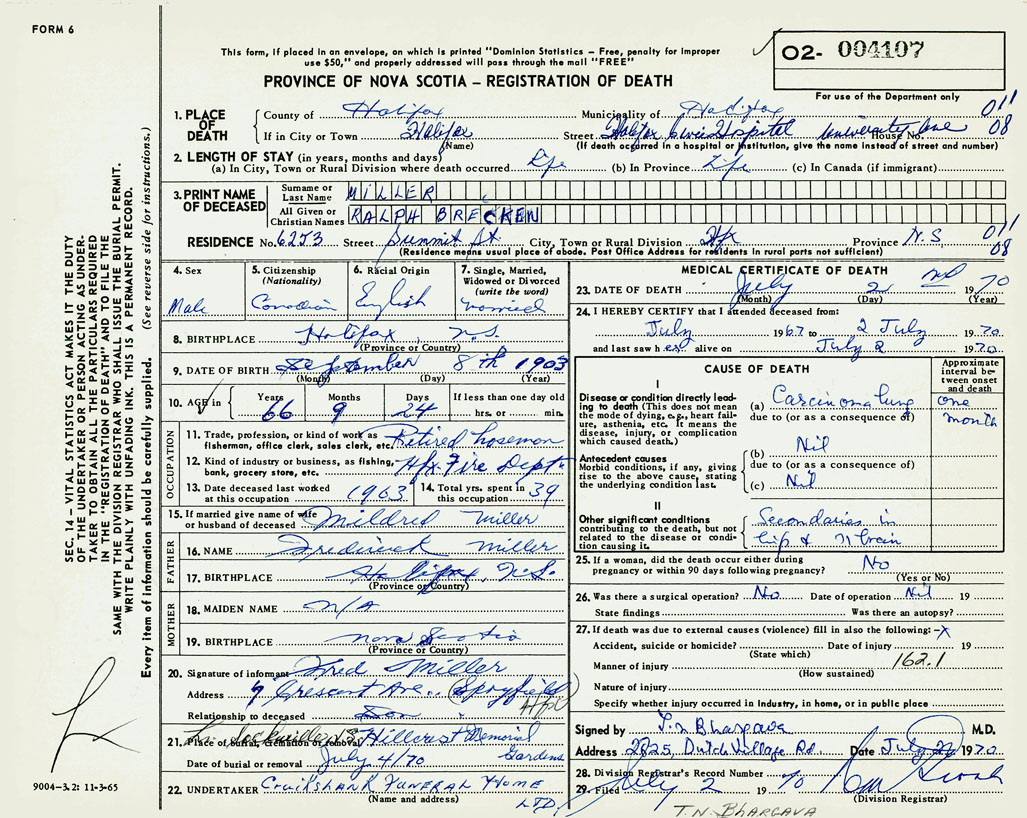 FORM 6
This form, if placed in an envelope, on which is printed "Dominion Statistics – Free, penalty for improper
use $50," and properly addressed will pass through the mail "FREE"
PROVINCE OF NOVA SCOTIA – REGISTRATION OF DEATH
O2- 004107
For use of the Department only
1. PLACE OF DEATH
County of Halifax Municipality of Halifax 011
If in City or Town Halifax Street Halifax Civic Hospital University Ave House No. 08
(Name) (If death occurred in a hospital or institution, give the name instead of street and number)
2. LENGTH OF STAY (in years, months and days)
(a) In City, Town or Rural Division where death occurred Life (b) In Province Life (c) In Canada (if immigrant)
3. PRINT NAME OF DECEASED
Surname or Last Name MILLER
All Given or Christian Names RALPH BRECKEN
RESIDENCE No. 6253 Street Summit St. City, Town or Rural Division Hfx Province N.S. 011
(Residence means usual place of abode. Post Office Address for residents in rural parts not sufficient) 08
4. Sex Male
5. Citizenship (Nationality) Canadian
6. Racial Origin English
7. Single, Married, Widowed or Divorced (write the word) Married
8. BIRTHPLACE Halifax, N.S.
(Province or Country)
9. DATE OF BIRTH September 8th 1903
(Month) (Day) (Year)
10. AGE in Years 66 Months 9 Days 24 If less than one day old hrs. or min.
OCCUPATION
11. Trade, profession, or kind of work as fisherman, office clerk, sales clerk, etc. Retired hoseman
12. Kind of industry or business, as fishing, bank, grocery store, etc. Hfx Fire Dept.
13. Date deceased last worked at this occupation 1963 14. Total yrs. spent in this occupation 39
15. If married give name of wife or husband of deceased Mildred Miller
FATHER
16. NAME Frederick Miller
17. BIRTHPLACE Halifax, N.S.
(Province or Country)
MOTHER
18. MAIDEN NAME N/A
19. BIRTHPLACE Nova Scotia
(Province or Country)
20. Signature of informant Fred Miller
Address 9 Crescent Ave., (Spryfield)
Relationship to deceased Son
21. Place of burial, cremation or removal Hillcrest Memorial Gardens
Date of burial or removal July 4/70
22. UNDERTAKER Cruikshank Funeral Home LTD.
(Name and address)
MEDICAL CERTIFICATE OF DEATH
23. DATE OF DEATH July 2 1970
(Month) (Day) (Year)
24. I HEREBY CERTIFY that I attended deceased from:
July 1967 to 2 July 1970
and last saw h alive on July 2 1970
CAUSE OF DEATH
Approximate interval between onset and death
I
Disease or condition directly leading to death (This does not mean the mode of dying, e.g., heart failure, asthenia, etc. It means the disease, injury, or complication which caused death.)
(a) Carcinoma lung one month
due to (or as a consequence of)
Antecedent causes
Morbid conditions, if any, giving rise to the above cause, stating the underlying condition last.
(b) Nil
due to (or as a consequence of)
(c) Nil
II
Other significant conditions contributing to the death, but not related to the disease or condition causing it.
Secondaries in
hip & brain
25. If a woman, did the death occur either during pregnancy or within 90 days following pregnancy? No
(Yes or No)
26. Was there a surgical operation? No Date of operation Nil 19
State findings Was there an autopsy?
27. If death was due to external causes (violence) fill in also the following:
Accident, suicide or homicide? Date of injury 19
(State which)
Manner of injury 162.1
(How sustained)
Nature of injury
Specify whether injury occurred in Industry, in home, or in public place
Signed by T.N Bhargava M.D.
Address 2825 Dutch Village Rd Date July 1970
28. Division Registrar's Record Number
29. Filed July 2 1970
(Division Registrar)
T.N. BHARGAVA
SEC. 14 – VITAL STATISTICS ACT MAKES IT THE DUTY
OF THE UNDERTAKER OR PERSON ACTING AS UNDER-
TAKER TO OBTAIN ALL THE PARTICULARS REQUIRED
IN THE "REGISTRATION OF DEATH" AND TO FILE THE
SAME WITH THE DIVISION REGISTRAR WHO SHALL ISSUE THE BURIAL PERMIT.
WRITE PLAINLY WITH UNFADING INK. THIS IS A PERMANENT RECORD.
Every item of information should be carefully supplied. (See reverse side for instructions.)
9004-3.2: 11-3-65